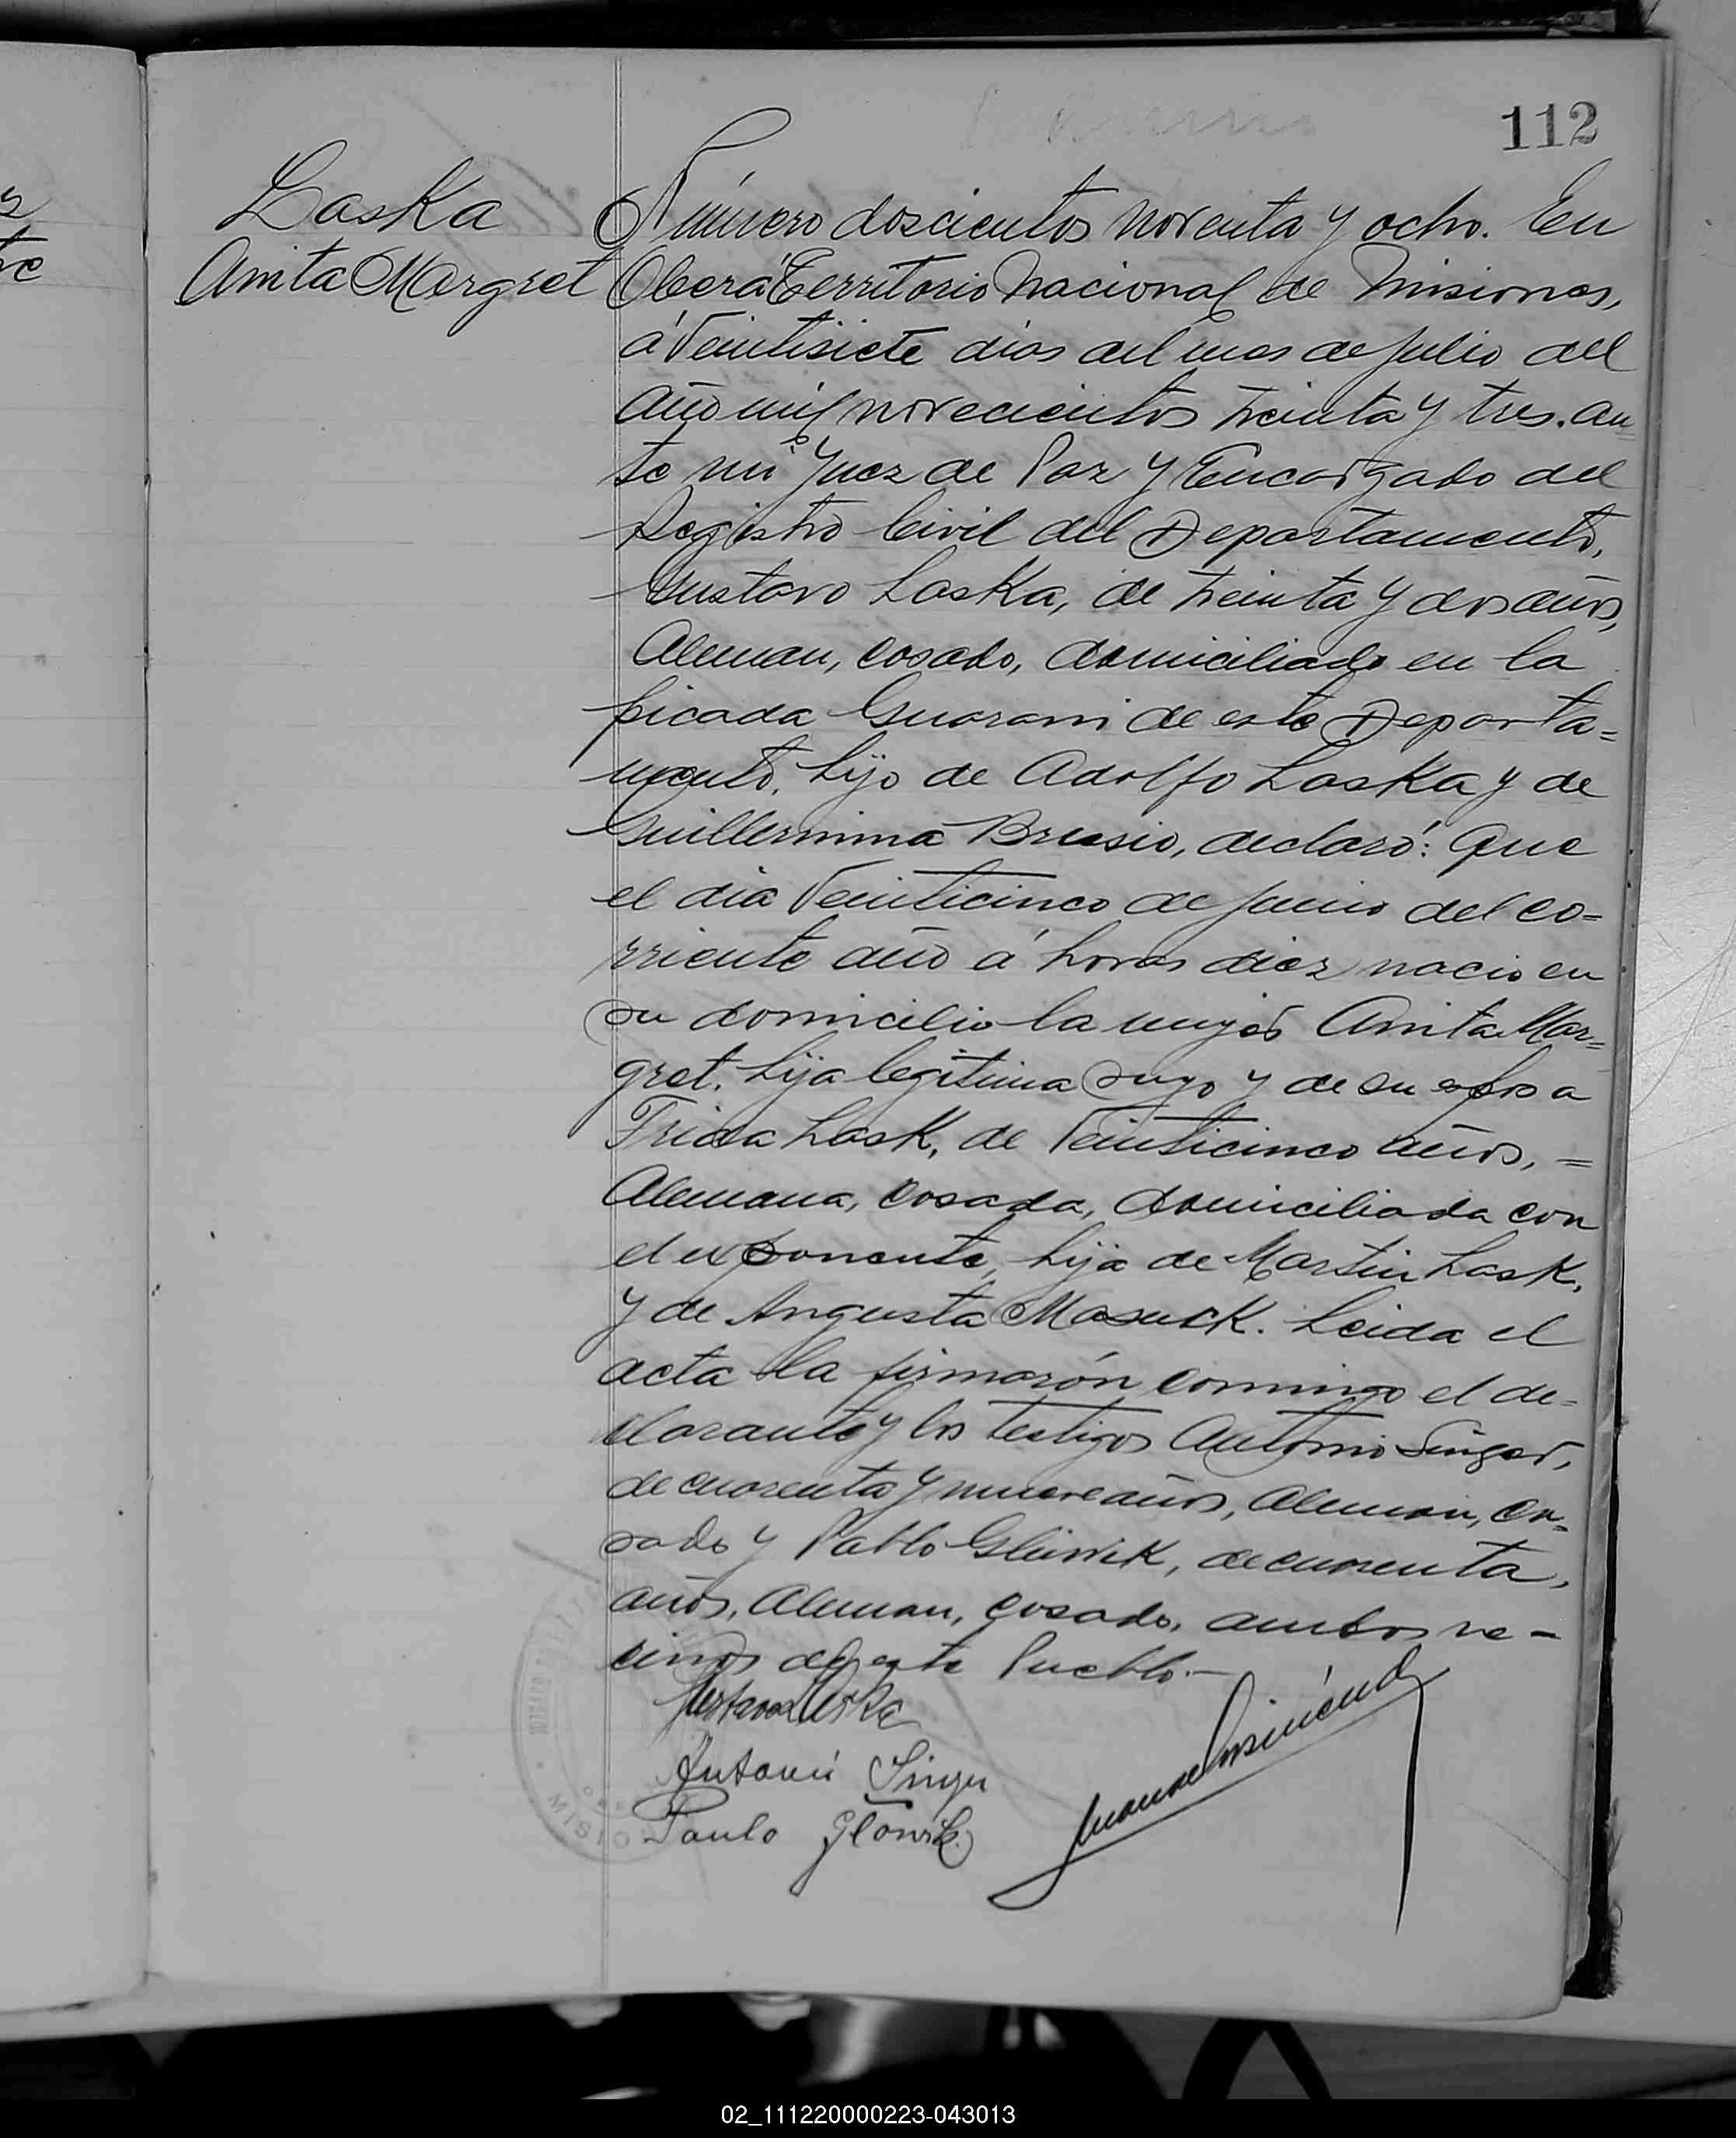 112
Laska
Anita Margret
Número doscientos noventa y ocho. En
Oberá Territorio Nacional de Misiones,
á veintisiete dias del mes de Julio del
año mil novecientos treinta y tres. an=
te mi Juez de Paz y Encargado del
Registro Civil del Departamento,
Gustavo Laska, de treinta y dos años,
Aleman, casado, domiciliado en la
picada Guarani de este Departa=
mento, hijo de Adolfo Laska y de
Guillermina Bresio, declaró: Que
el dia veinticinco de Junio del co=
rriente año á horas diez nacio en
su domicilio la mujer Anita Mar=
gret. hija legitima suya y de su esposa
Frida Lask, de veinticinco años, =
Alemana, casada, domiciliada con
el exponente, hija de Martin Lask,
y de Angusta Masuck. Leida el
acta la firmarón conmigo el de=
clarante y los testigos Antonio Singer,
de cuarenta y nueve años, Aleman, ca=
sado y Pablo Gluwik, de cuarenta,
años, Aleman, casado, ambos ve-
cinos de este Pueblo.-
Gustavo Laska
Antonio Singer
Paulo Glowik
MISIO
02_111220000223-043013